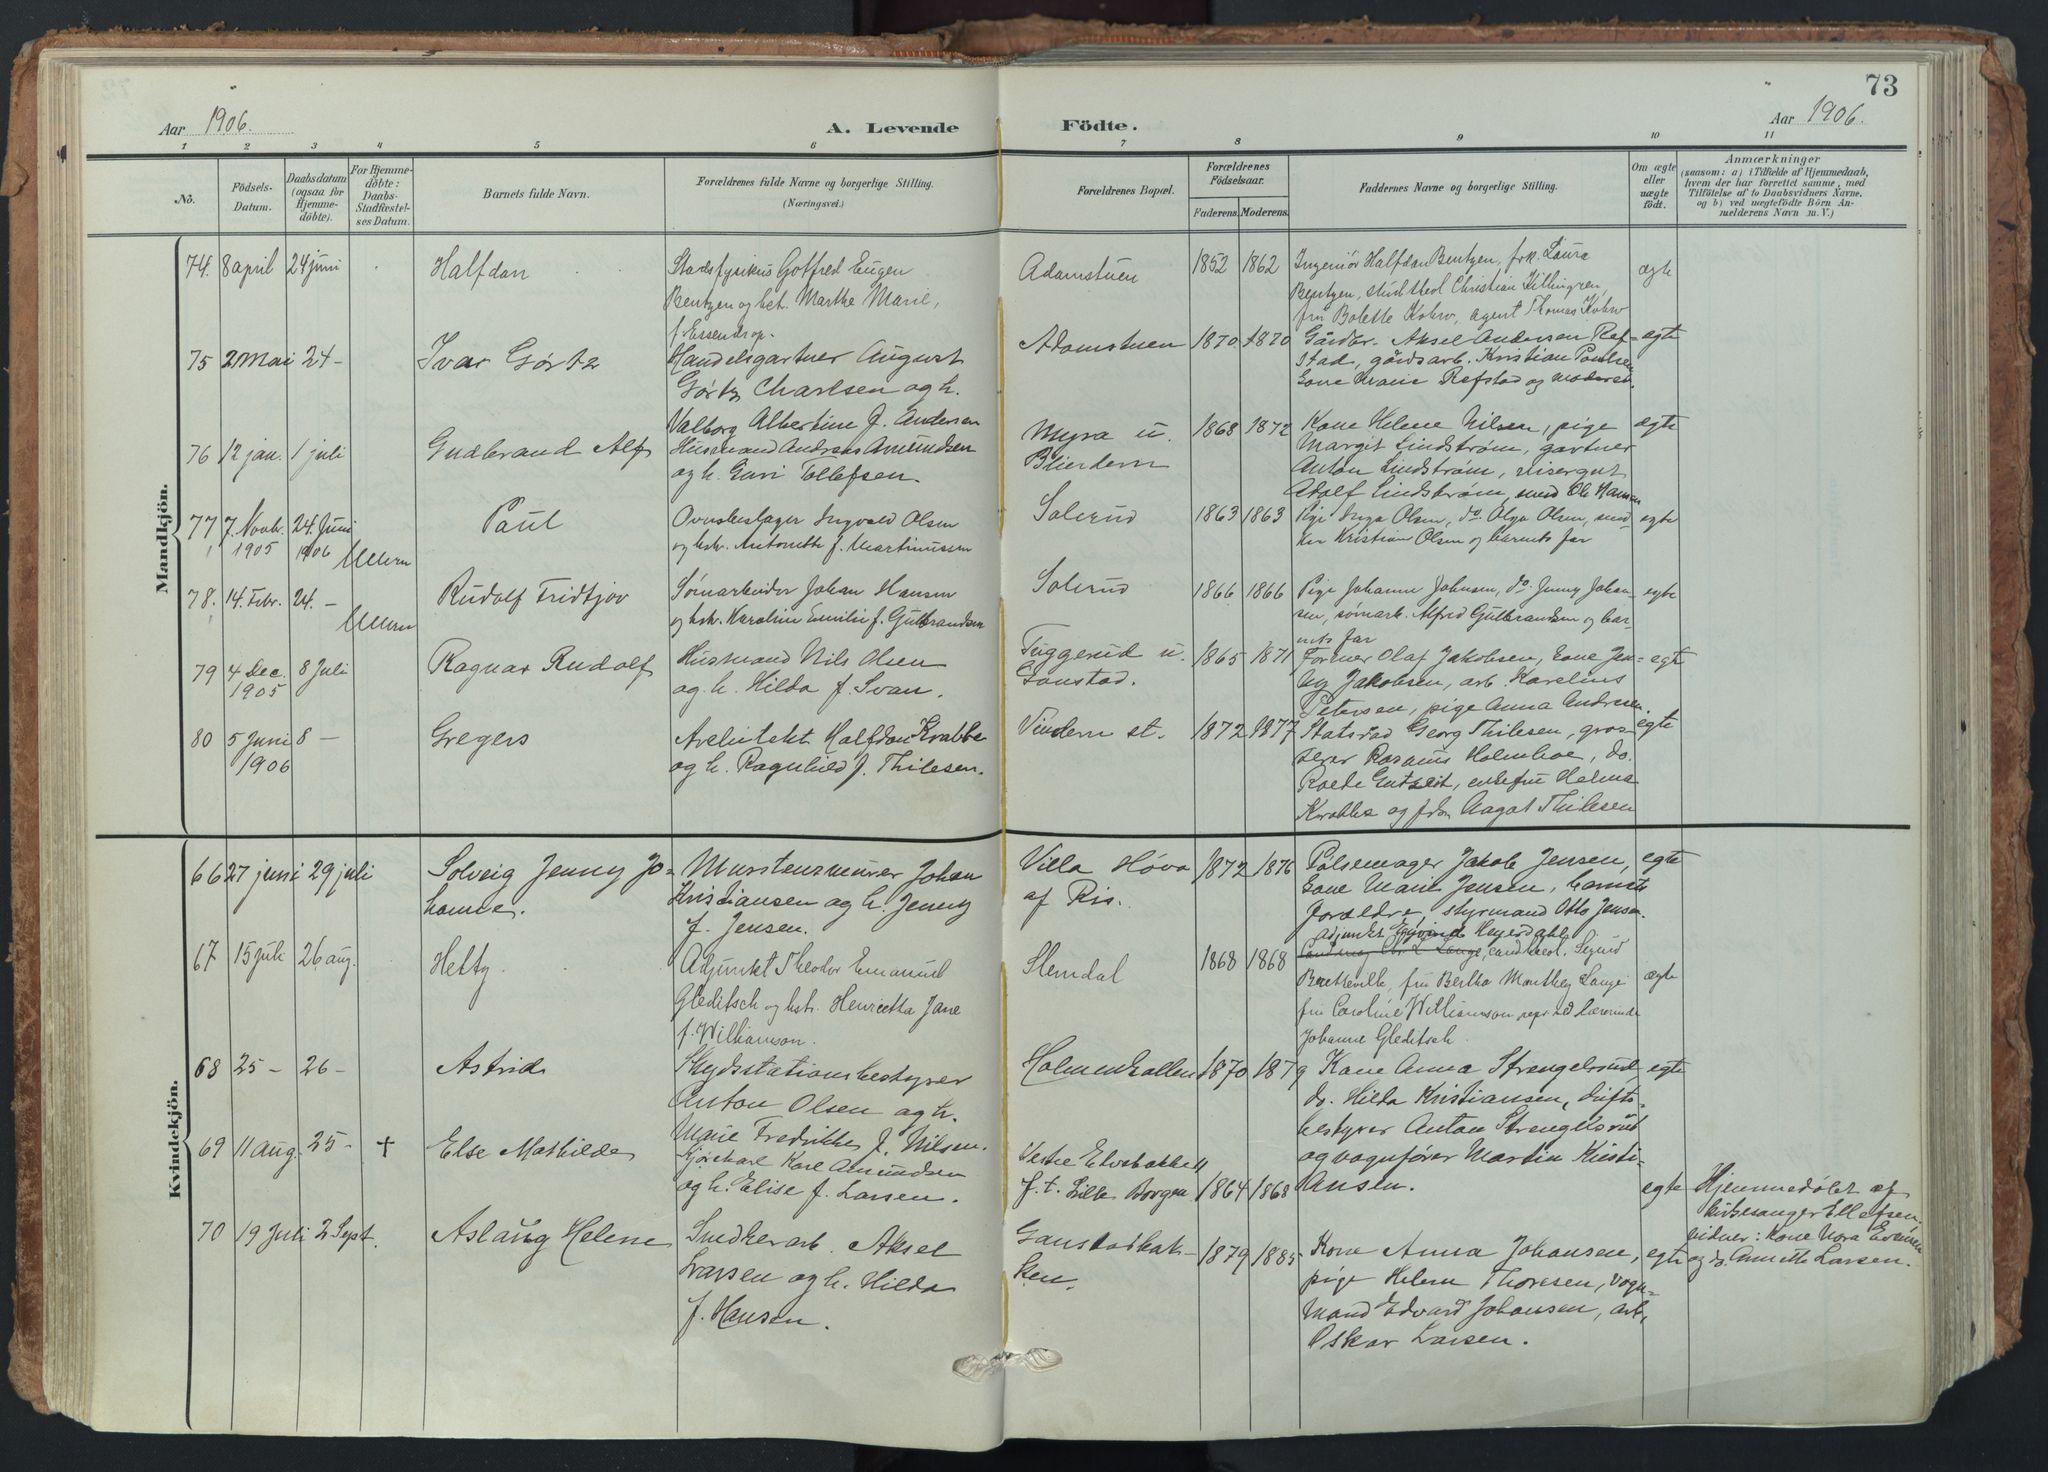 73
Aar 1906.
A. Levende Födte.
Aar 1906.
1 2 3 4 5 6 7 8 9 10 11
No.
Födsels-
Datum.
Daabsdatum
(ogsaa for
Hjemme-
döbte).
For Hjemme-
döbte:
Daabs-
Stadfæstel-
ses Datum.
Barnets fulde Navn.
Forældrenes fulde Navne og borgerlige Stilling.
(Næringsvei.)
Forældrenes Bopæl.
Forældrenes
Födselsaar.
Faderens. Moderens.
Faddernes Navne og borgerlige Stilling.
Om ægte
eller
uægte
födt.
Anmærkninger
(saasom: a) i Tilfælde af Hjemmedaab,
hvem der har forrettet samme, med
Tilföielse af to Daabsvidners Navne,
og b) ved uægtefödte Börn An-
melderens Navn m. V.)
Mandkjön.
74. 8 april 24 juni Halfdan
Stadsfysikus Gotfred Eugen
Bentzen og hst. Marthe Marie,
f. Essendrop.
Adamstuen 1852 1862
Ingeniør Halfdan Bentzen, frk. Laura
Bentzen, stud. theol Christian Killingren,
fru Bolette Kohrv, agent Thomas Kohrv
ægte
75 2 Mai 24 - Ivar Görtz
Handelsgartner August
Gørtz Charlsen og h.
Valborg Albertine f. Andersen
Adamstuen 1870 1870
Gårdbr. Aksel Andersen Ref-
stad, gårdsarb. Kristian Poulsen
Kone Marie Refstad og moderen.
egte
76 12 jan. 1 juli Gudbrand Alf
Husmand Andreas Amundsen
og h. Guri Tollefsen.
Myra u.
Blindern
1868 1872
Kone Helene Nilsen, pige
Margit Lindstrøm, gartner
Anton Lindstrøm, visergut
Adolf Lindstrøm, smed Ole Hansen
egte
77 7. Novb. 24. Juni
1905 1906
Ullern
Paul
Ovnsbeslager Ingvald Olsen
og hst. Antonette f. Martinussen
Solerud 1863 1863
Pige Inga Olsen, do. Olga Olsen, sned-
ker Kristian Olsen og barnets far
egte
78. 14. Febr. 24. -
Ullern
Rudolf Fridtjov
Sømarbeider Johan Hansen
og hst. Karoline Emilie f. Gulbrandsen
Solerud 1866 1866
Pige Johanne Johnsen, do. Jenny Johan-
sen, sømarb. Alfred Gulbrandsen og bar-
nets far
egte
79 4 Dec. 8 Juli
1905
Ragnar Rudolf
Husmand Nils Olsen
og h. Hilda f. Svan.
Tuggerud u.
Gaustad.
1865 1871
Former Olaf Jakobsen, Kone Jen-
ny Jakobsen, arb. Karelius
Petersen, pige Anna Andresen.
egte
80 5 Juni 8 -
1906
Gregers
Arkitekt Halfdan Krabbe
og h. Ragnhild f. Thilesen.
Vindern st. 1872 1877
Statsråd Georg Thilesen, gros-
serer Rasmus Holmboe, do.
Roede Gutzeit, enkefru Helma
Krabbe og frkn Aagot Thilesen
egte
Kvindekjön.
66 27 juni 29 juli Solveig Jenny Jo-
hanne.
Murstensmurer Johan
Kristiansen og h. Jenny
f. Jensen.
Villa Høva
af Ris.
1872 1876
Pølsemager Jakob Jensen,
Kone Marie Jensen, barnets
forældre, styrmand Otto Jensen.
egte
67 15 juli 26 aug. Hetty
Adjunkt Theodor Emanuel
Gleditsch og hst. Henrietta Jane
f. Williamson.
Slemdal 1868 1868
adjunkt Eyvind Heyerdahl
cand. mag. Chr. L. Lange, cand. theol. Sigurd
fru Bertha Manthey Lange
fru Caroline Williamson repr. ved lærerinde
Johanne Gleditsch.
ægte
68 25 - 26 - Astrid
Skydsstationsbestyrer
Anton Olsen og h.
Marie Fredrikke f. Nilsen.
Holmenkollen 1870 1879
Kone Anna Strengelsrud,
do. Hilda Kristiansen, drifts-
bestyrer Anton Strengelsrud
og vognfører Martin Kristi-
ansen.
egte
69 11 aug. 25 - + Else Mathilde
Kjørekarl Karl Amundsen
og h. Elise f. Larsen.
Vestre
f. t. Lille Borgen
1864 1868
egte
Hjemmedøbt af
kirkesanger Ellefsen.
vidner: Kone Nora Evensen
og do. Annette Larsen.
70 19 Juli 2 Sept. Aslaug Helene
Snedkerarb. Aksel
Larsen og h. Hilda
f. Hansen.
Gaustadbak-
ken.
1879 1885
Kone Anna Johansen,
pige Helene Thoresen, vogn-
mand Edvard Johansen, arb.
Oskar Larsen.
egte